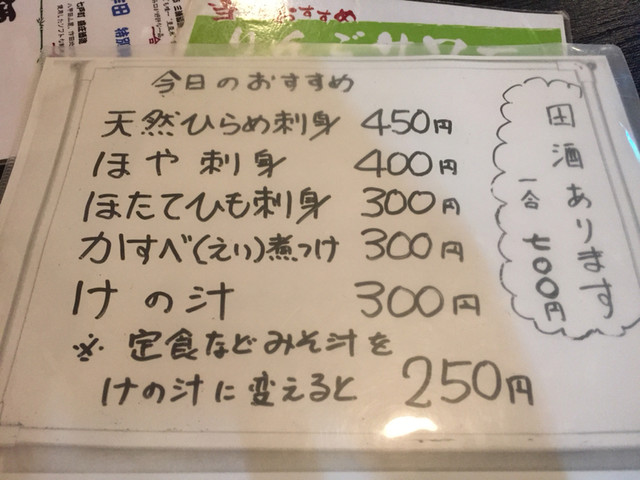 今日のおすすめ
天然ひらめ刺身 450円
ほや刺身 400円
ほたてひも刺身 300円
かすべ(えい)煮つけ 300円
けの汁 300円
※定食などみそ汁を
けの汁に変えると 250円
田酒あります
一合 七00円